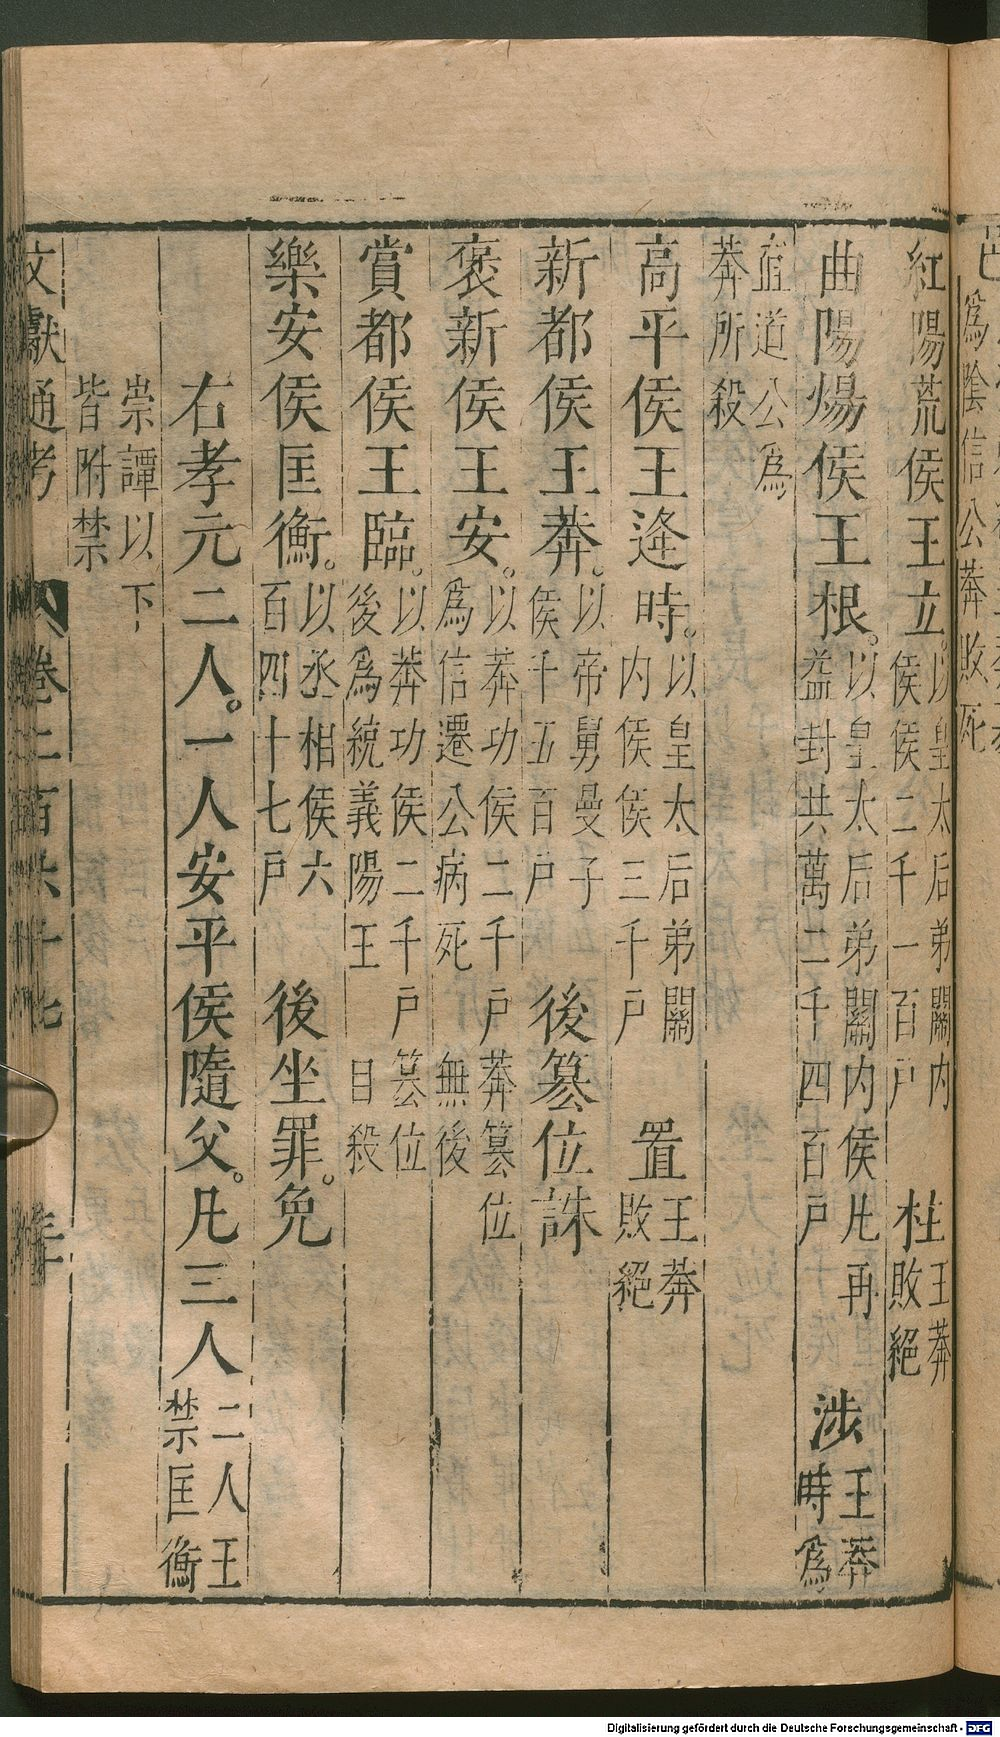 紅陽荒侯王立。以皇太后弟關內侯侯二千一百戶 柱 王莽敗絕
曲陽煬侯王根。以皇太后弟關内侯凡再益封共萬二千四百戶 涉 王莽時爲
直道公爲莽所殺
高平侯王逢時。以皇太后弟關内侯侯三千戶 置 王莽敗絕
新都侯王莽。以帝舅曼子侯千五百戶 後簒位誅
褒新侯王安。以莽功侯二千戶莽簒位爲信遷公病死無後
賞都侯王臨。以莽功侯二千戶簒位後爲統義陽王自殺
樂安侯匡衡。以丞相侯六百四十七戶 後坐罪。免
右孝元二人。一人安平侯隨父。凡三人 二人王禁匡衡
崇譚以下皆附禁
文獻通考 卷二百六十七
爲陰信公莽敗死
Digitalisierung gefördert durch die Deutsche Forschungsgemeinschaft - DFG